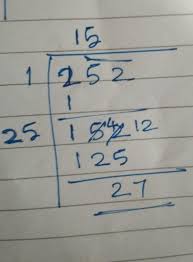 15
1 252
1
25 152 4 12
125
27